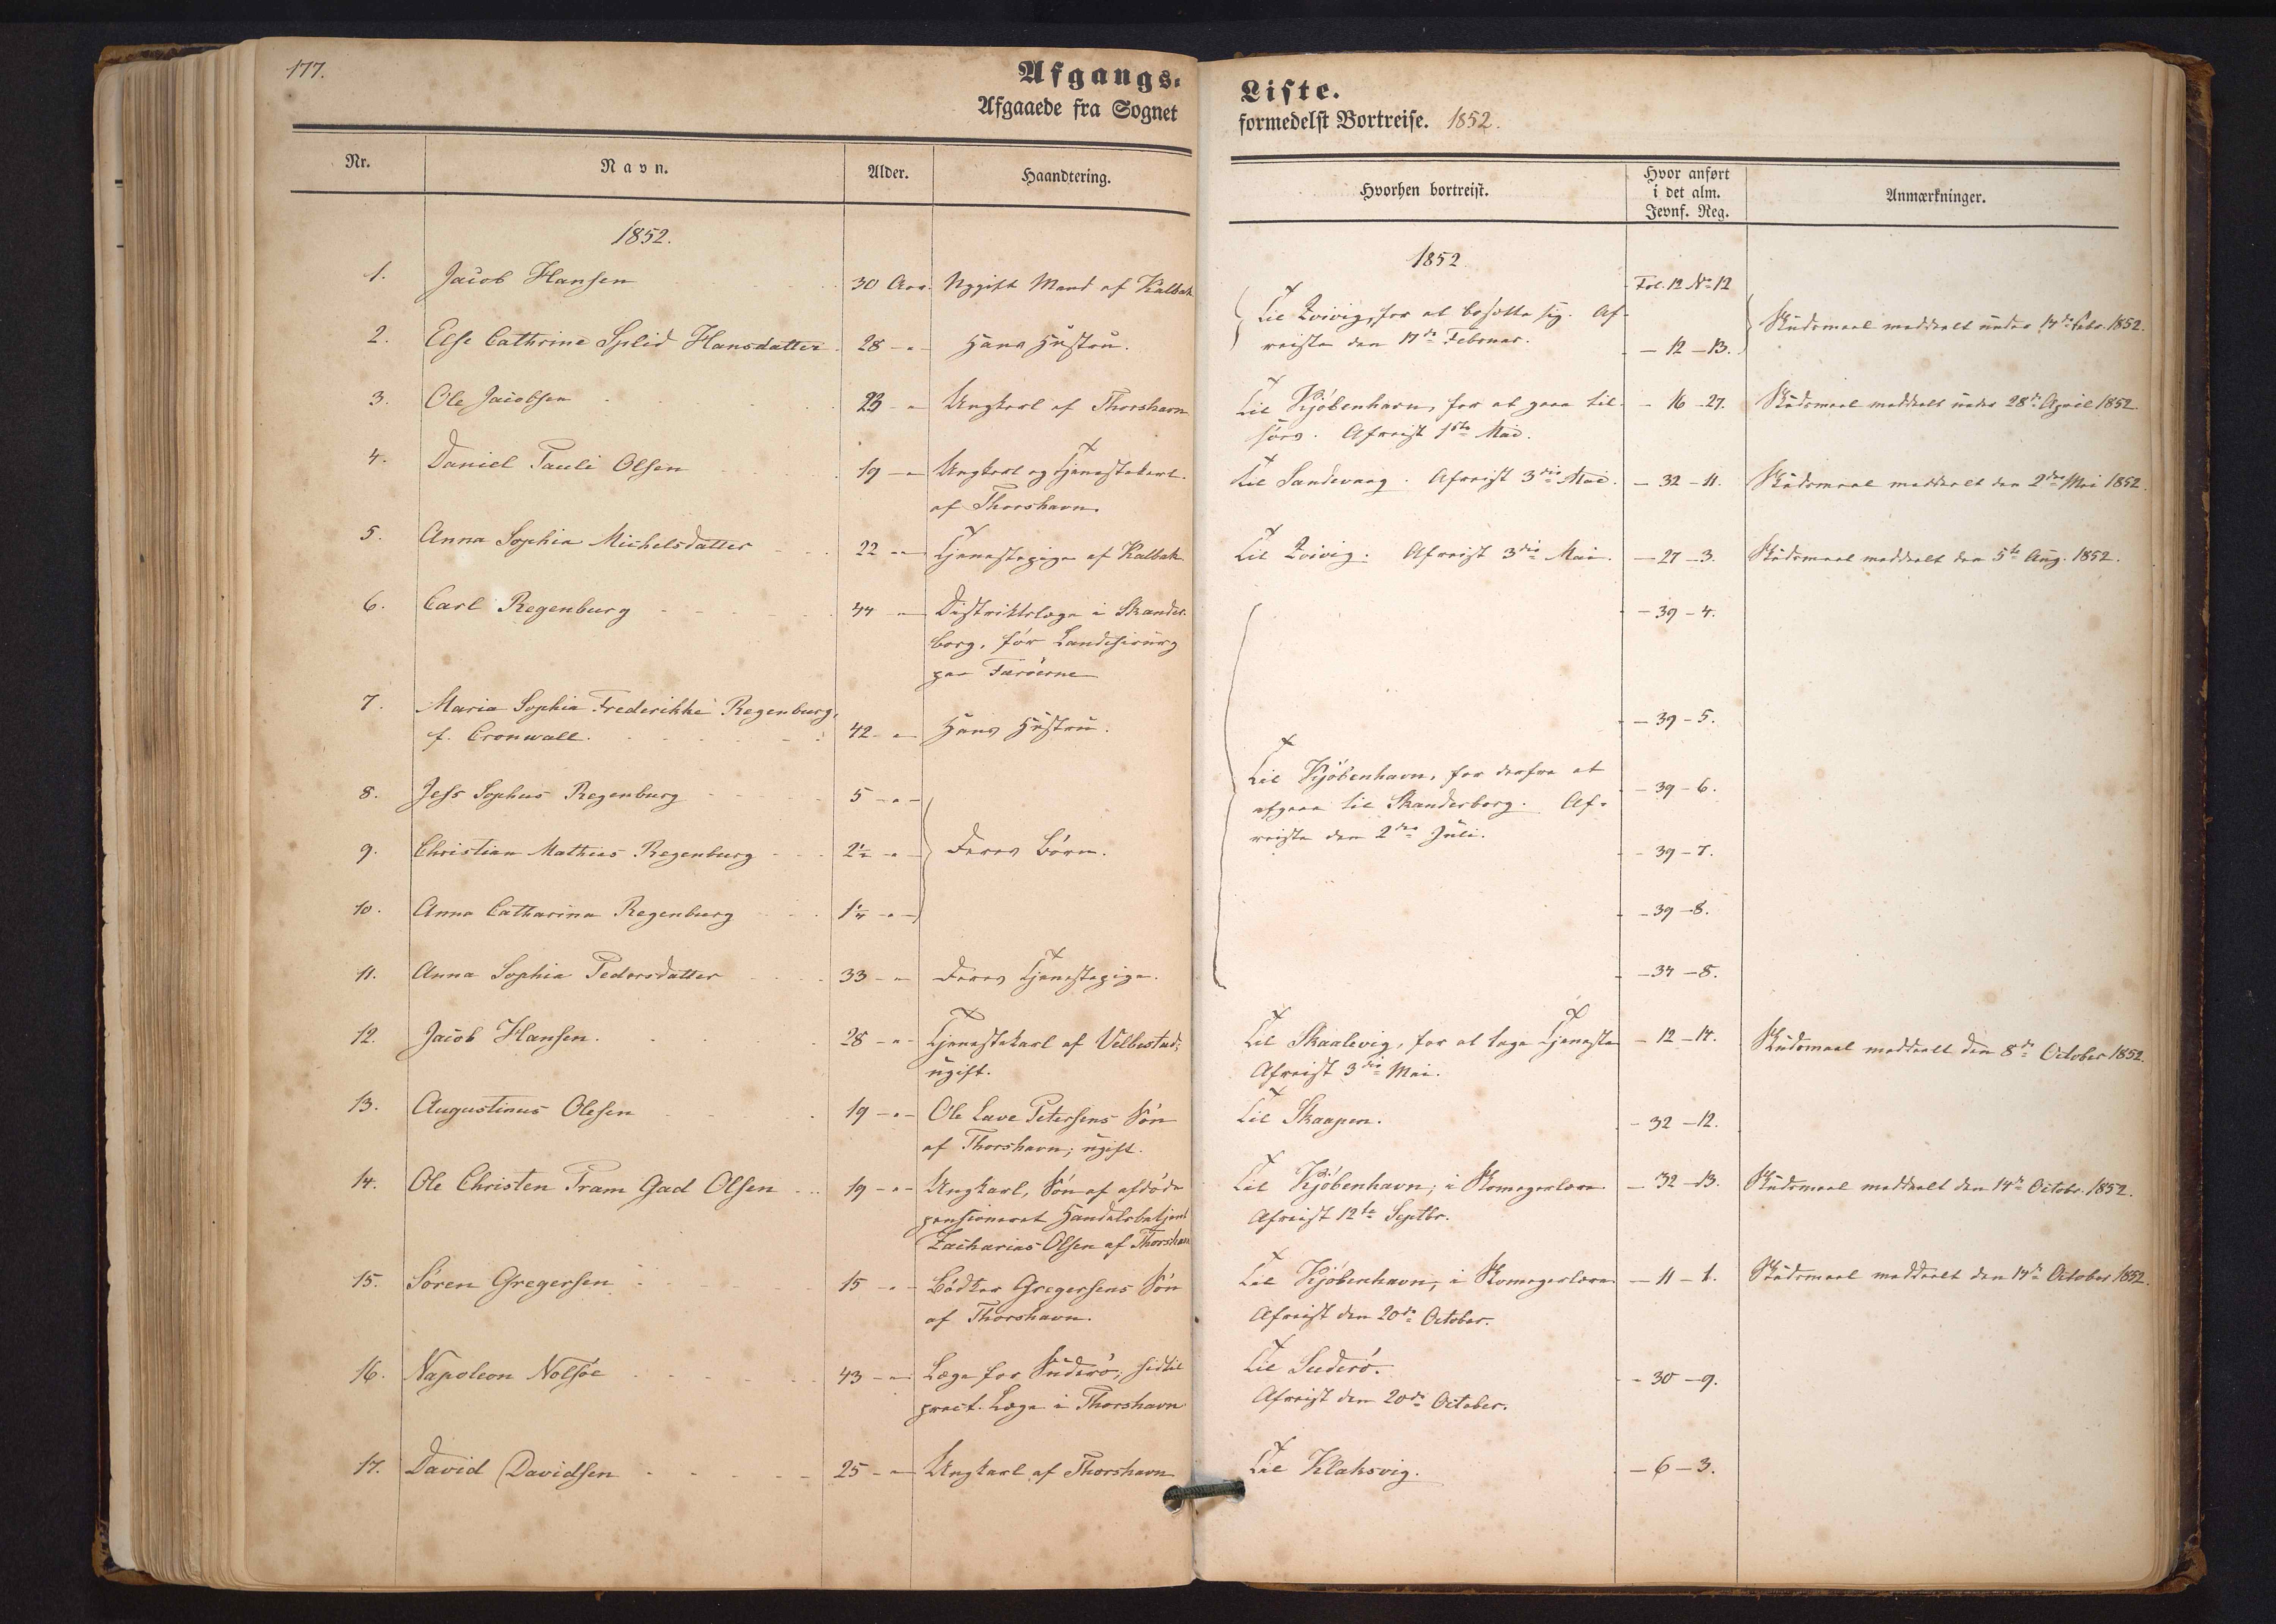 177.
Afgangs-
Afgaaede fra Sognet
Nr. Navn. Alder. Haandtering.
1852.
1. Jacob Hansen 30 Aar. Nygift Mand af Kalbak
2. Else Cathrine Splid Hansdatter 28 - " - Hans Hustru.
3. Ole Jacobsen 23 - " - Ungkarl af Thorshavn
4. Daniel Pauli Olsen 19 - " - Ungkarl og Tjenestekarl
af Thorshavn.
5. Anna Sophia Michelsdatter 22 - " - Tjenestepige af Kalbak
6. Carl Regenburg 44 - " - Distriktslæge i Skander-
borg, før Landchirurg
paa Færøerne
7. Maria Sophia Frederikke Regenburg,
f. Cronwall. 42 - " - Hans Hustru.
8. Jess Sophus Regenburg 5 - " -
9. Christian Mathias Regenburg 2½ - " - Deres Børn.
10. Anna Catharina Regenburg 1¼ - " -
11. Anna Sophia Pedersdatter 33 - " - Deres Tjenestepige.
12. Jacob Hansen. 28 - " - Tjenestekarl af Velbestad;
ugift.
13. Augustinus Olesen 19 - " - Ole Lave Petersens Søn
af Thorshavn; ugift.
14. Ole Christen Tram Gad Olsen 19 - " - Ungkarl, Søn af afdøde
pensioneret Handelsbetjent
Zacharias Olsen af Thorshavn
15. Søren Gregersen 15 - " - Bødker Gregersens Søn
af Thorshavn.
16. Napoleon Nolsøe 43 - " - Læge for Suderø; hidtil
pract. Læge i Thorshavn
17. David Davidsen 25 - " - Ungkarl af Thorshavn
Liste.
formedelst Bortreise. 1852.
Hvorhen bortreist. Hvor anført
i det alm.
Jevnf. Reg. Anmærkninger.
1852
Fol. 12 No 12
Til Qvivig, for at bosætte sig. Af-
reiste den 17de Februar. - 12 - 13. Skudsmaal meddeelt under 14de Febr. 1852.
Til Kjøbenhavn, for at gaae til - 16 - 27. Skudsmaal meddeelt under 28de April 1852.
søes. Afreist 1ste Mai.
Til Sandevaag. Afreist 3die Mai. - 32 - 11. Skudsmaal meddeelt den 2den Mai 1852.
Til Qvivig. Afreist 3die Mai. - 27 - 3. Skudsmaal meddeelt den 5te Aug. 1852.
- 39 - 4.
- 39 - 5.
Til Kjøbenhavn, for derfra at
afgaae til Skanderborg. Af- - 39 - 6.
reiste den 2den Juli.
- 39 - 7.
- 39 - 8.
- 34 - 8.
Til Skaalevig, for at tage Tjeneste - 12 - 14. Skudsmaal meddeelt den 8de October 1852.
Afreist 3die Mai.
Til Skaapen. - 32 - 12.
Til Kjøbenhavn; i Skomagerlære - 32 - 13. Skudsmaal meddeelt den 14de Octobr. 1852.
Afreist 12te Septbr.
Til Kjøbenhavn, i Skomagerlære. - 11 - 1. Skudsmaal meddeelt den 14de October 1852.
Afreist den 20de October.
Til Suderø. - 30 - 9.
Afreist den 20de October.
Til Klaksvig. - 6 - 3.